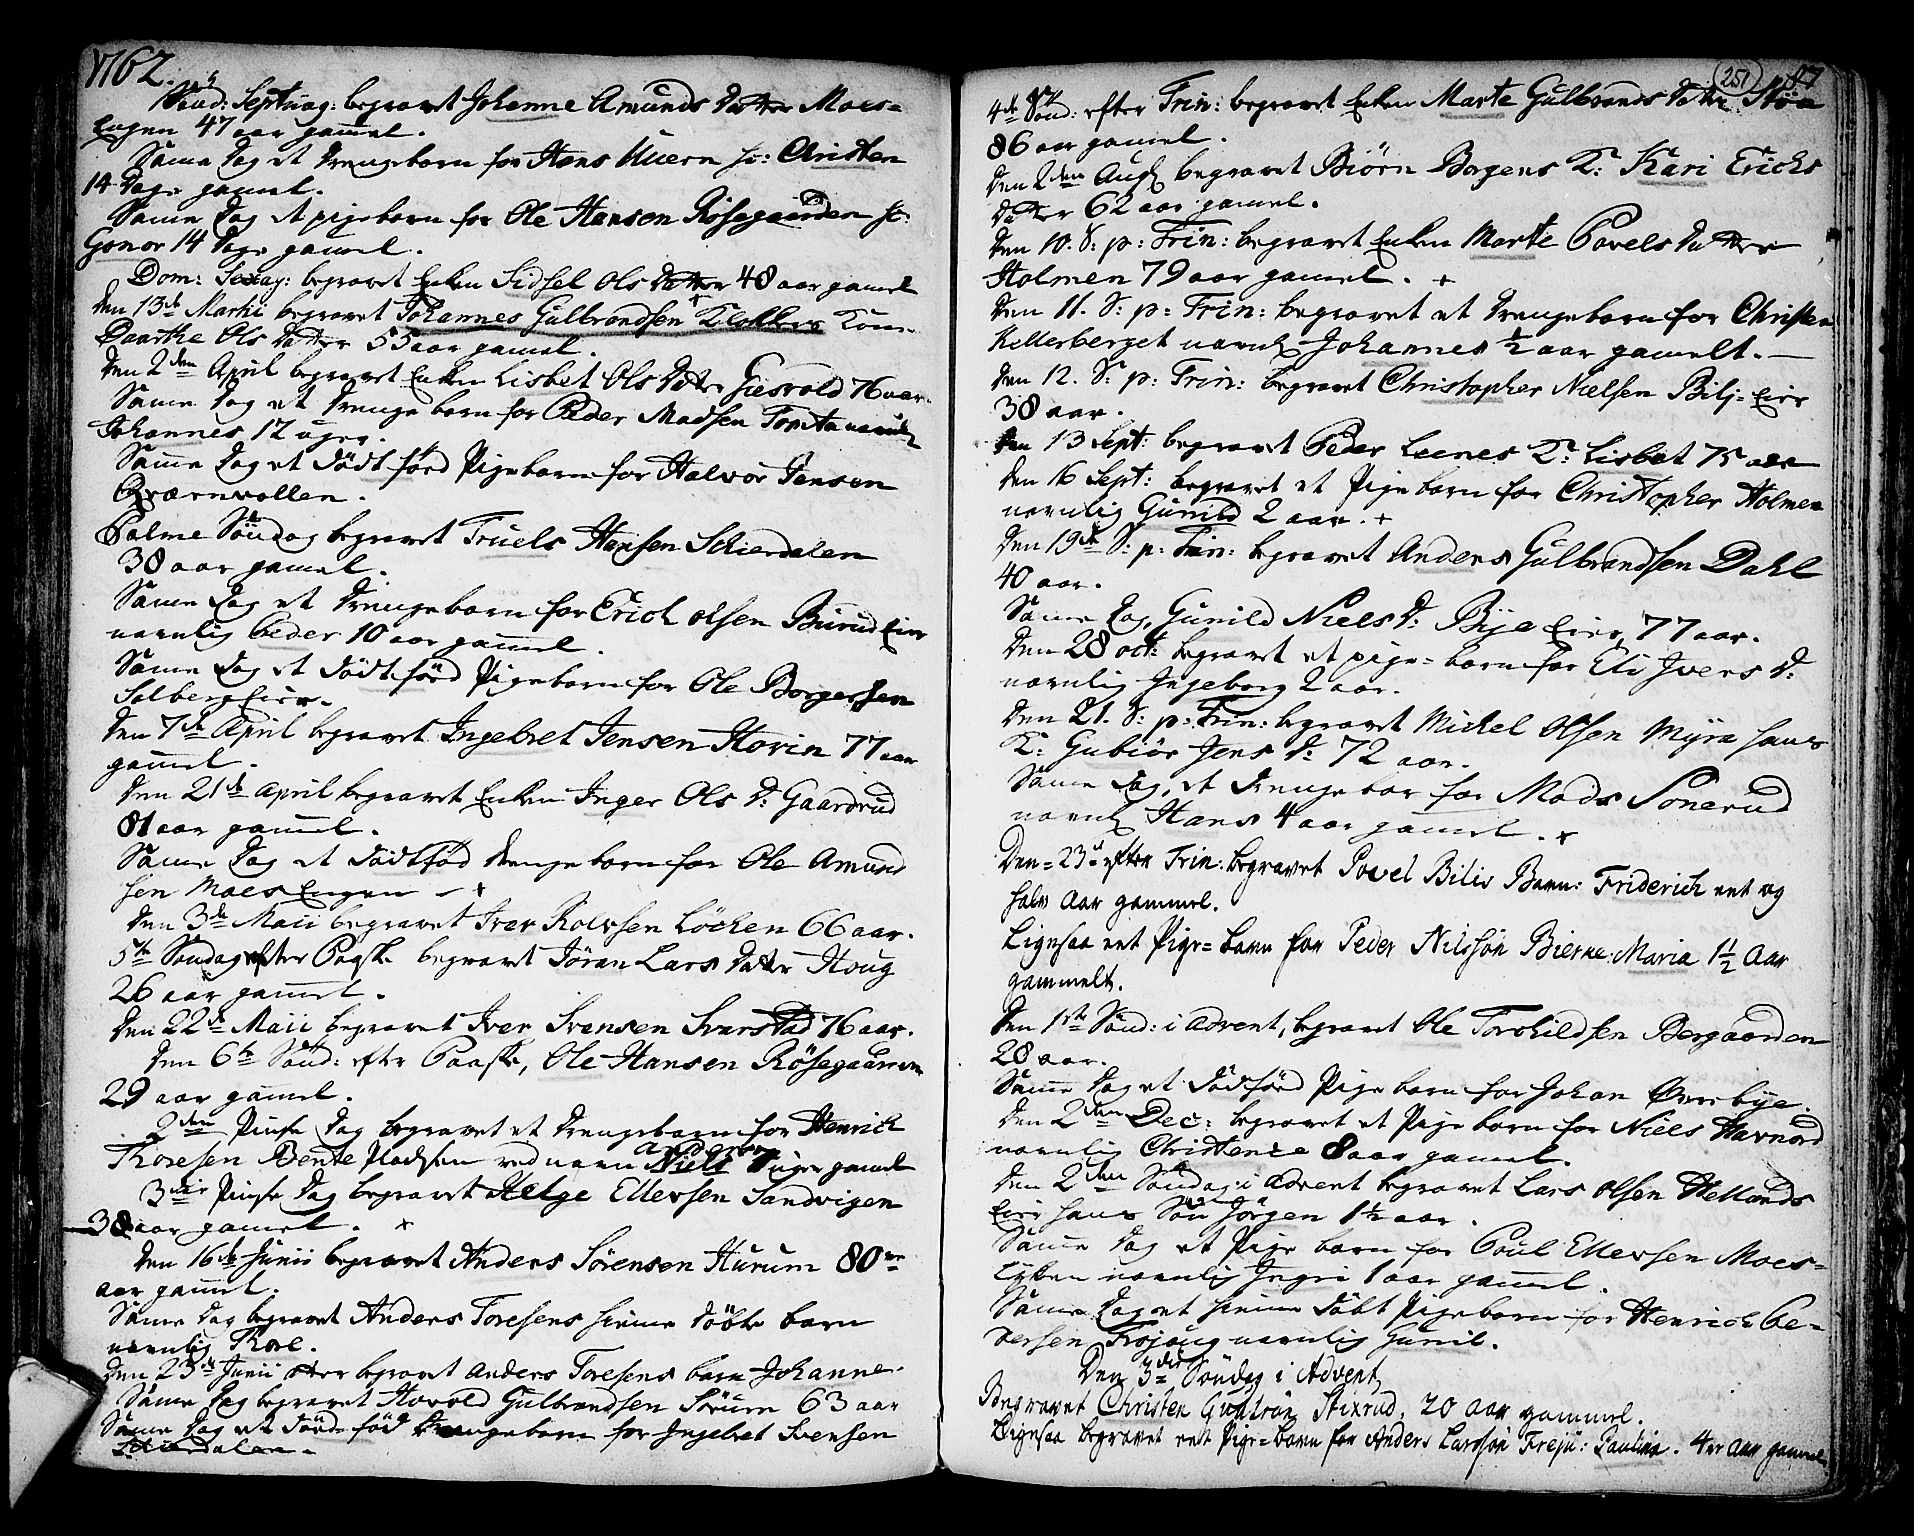 1762.
Sönd: Septuag: begravet Johanne Amunds Datter Moes=
Engen 47 aar gammel.
Samme Dag et Drengebarn for Hans Huern h: Christen
14 Dage gamel.
Samme Dag et pigebarn for Ole Hansen Rösegaarden h:
Gonor 14 Dage gamel.
Dom: Sexag: begravet Enken Sidsel Ols Datter 48 aar gamel
Den 13de Martii begravet Johannes Gulbrandsen Klokkers Kone
Daarthe Ols Datter 55 aar gamel.
Den 2den April begravet Enken Lisbet Ols Datter Giesvold 76 aar.
Samme Dag et Drenge barn for Peder Madsen Tomta navnl:
Johannes 12 uger.
Samme Dag et Dödt föd Pigebarn for Halvor Jensen
Qværnvollen.
Palme Söndag begravet Truels Hansen Schierdalen
38 aar gamel.
Samme Dag et Drengebarn for Erich Olsen Burud Eier
navnlig Peder 10 aar gammel.
Samme Dag et Dödt föd Pigebarn for Ole Borgersen
Solberg Eier.
Den 7de April begravet Ingebret Jensen Hovin 77 aar
gammel.
Den 21de April begravet Enken Inger Ols D: Gaardrud
81 aar gammel.
Samme Dag et dödtföd Drenge barn for Ole Amund
sen Moes Engen - +
Den 3de Maii begravet Iver Rolvsen Löchen 66 aar.
5te Söndag efter Paaske begravet Jöran Lars Datter Houg
26 aar gammel.
Den 22de Maii begravet Iver Svensen Svarstad 76 aar.
Den 6te Sönd: efter Paaske, Ole Hansen Rösegaarden
29 aar gamel.
2den Pintse Dag begravet et Drengebarn for Henrich
Thoresen Bente Madsen ved navn Niels uger gamel
3die Pintse Dag begravet Helge Ellevsen Sandvigen
38 aar gamel. x
Den 16de Junii begravet Anders Sörensen Hurum 80
aar gammel.
Samme Dag begravet Anders Toresens hieme Döbte barn
navnlig Thore.
Den 23de Junii begravet Anders Toresens barn Johanne.
Samme Dag begravet Havold Gulbrandsen Sörum 63 aar
Samme Dag et Död föd Drengebarn for Ingebret Svensen
Schierdalen.
251
4de Sönd: efter Trin: begravet Enken Marte Gulbrands Datter
86 aar gammel.
Den 2den Aug begravet Biörn Borgens K: Kari Erichs
Datter 62 aar gamel.
Den 10. S: p: Trin: begravet Enken Marte Povels Datter
Holmen 79 aar gamel. +
Den 11. S: p: Trin: begravet et Drengebarn for Christen
Kellerberget navnl Johannes ½ aar gamelt.
Den 12. S: p: Trin: begravet Christopher Nielsen Bilj= Eier
38 aar.
Den 13 Sept: begravet Peder Leenes K: Lisbet 75 aar
Den 16 Sept: begravet et Pige barn for Christopher Holmen
navnlig Gunild 2 aar. +
Den 19de S: p: Trin: begravet Anders Gulbrandsen Dahl
40 aar.
Samme Dag, Gunild Niels D: Bije Eier, 77 aar.
Den 28 oct: begravet et pige= barn for Eli Ivers D:
navnlig Ingeborg 2 aar.
Den 21. S: p: Trin: begravet Michel Olsen Myra hans
K: Gubiör Jens D: 72 aar.
Samme Dag, et Drenge bar for Mads Sonerud
navnl Hans 4 aar gamel. x
Den= 23de efter Trin: begravet Povel Bilis Barn: Friderich eet og
halv Aar gammel.
Ligesaa eet Pige= barn for Peder Nilssön Bierke: Maria 1½ Aar
gammelt.
Den 1ste Sönd: i Advent, begravet Ole Torchildsen Bergaarden
28 aar.
Samme Dag et Dödföd Pige barn for Johan Övre bye.
Den 2den Dec: begravet et Pige barn for Niels Havnord
navnlig Christense 8 aar gamel.
Den 2den Söndag i Advent begravet Lars Olsen Hellands
Eier hans Sön Jörgen 1½ aar.
Samme Dag et Pige barn for Poul Ellevsen Moes=
Lykken navnlig Ingri 1 aar gammel.
Samme Dag et hieme döbt Pigebarn for Henrich Pe=
dersen Trojoug navnlig Gunil.
Den 3die Söndag i Advent,
Begravet Christen Stixrud, 20 aar gammel.
Ligesaa begravet eet Pige= barn for Anders Larssön Freju: Paulina. 4re Aar gammel.